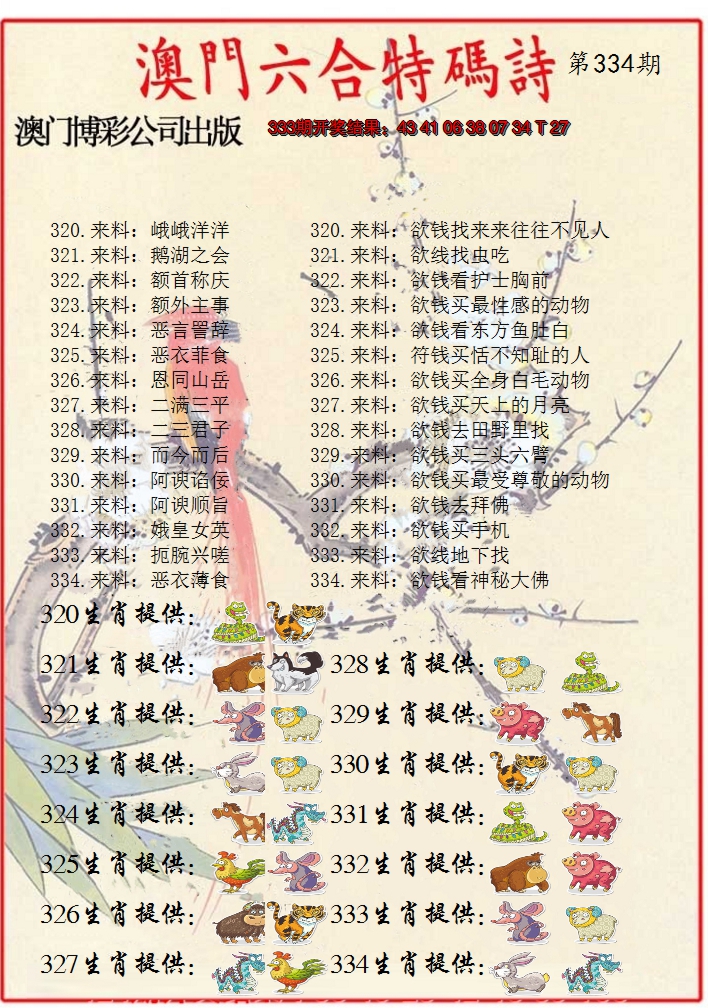 澳門六合特碼詩 第334期
澳门博彩公司出版 333期开奖结果：43 41 06 38 07 34 T 27
320.来料：峨峨洋洋 320.来料：欲钱找来来往往不见人
321.来料：鹅湖之会 321.来料：欲线找虫吃
322.来料：额首称庆 322.来料：欲钱看护士胸前
323.来料：额外主事 323.来料：欲钱买最性感的动物
324.来料：恶言詈辞 324.来料：欲钱看东方鱼肚白
325.来料：恶衣菲食 325.来料：符钱买恬不知耻的人
326.来料：恩同山岳 326.来料：欲钱买全身白毛动物
327.来料：二满三平 327.来料：欲钱买天上的月亮
328.来料：二三君子 328.来料：欲钱去田野里找
329.来料：而今而后 329.来料：欲钱买三头六臂
330.来料：阿谀谄佞 330.来料：欲钱买最受尊敬的动物
331.来料：阿谀顺旨 331.来料：欲钱去拜佛
332.来料：娥皇女英 332.来料：欲钱买手机
333.来料：扼腕兴嗟 333.来料：欲线地下找
334.来料：恶衣薄食 334.来料：欲钱看神秘大佛
320生肖提供：
321生肖提供： 328生肖提供：
322生肖提供： 329生肖提供：
323生肖提供： 330生肖提供：
324生肖提供： 331生肖提供：
325生肖提供： 332生肖提供：
326生肖提供： 333生肖提供：
327生肖提供： 334生肖提供：